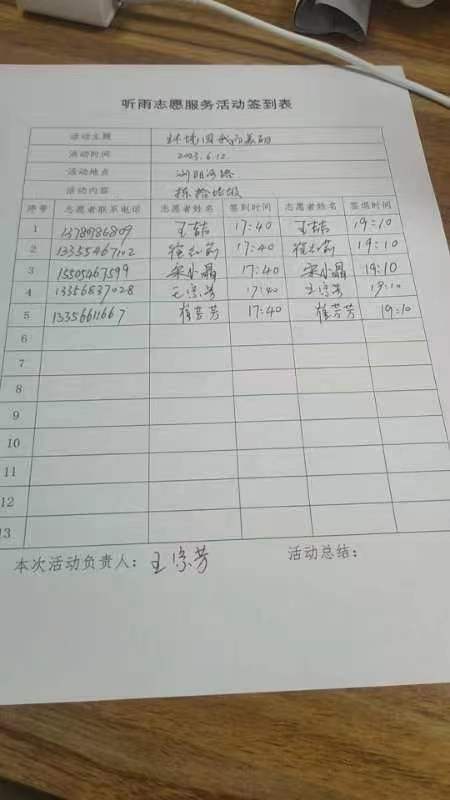 听雨志愿服务活动签到表
活动主题 环境因我而美丽
活动时间 2023.6.12
活动地点
活动内容 捡拾垃圾
序号 志愿者联系电话 志愿者姓名 签到时间 志愿者姓名 签退时间
1 1378986809 王喆 17:40 王喆 19:10
2 13355467102 17:40 19:10
3 15505467599 宋小晶 17:40 宋小晶 19:10
4 13356837028 王宗芳 17:40 王宗芳 19:10
5 1335661667 崔芳芳 17:40 崔芳芳 19:10
6
7
8
9
10
11
12
13
本次活动负责人：王宗芳 活动总结：